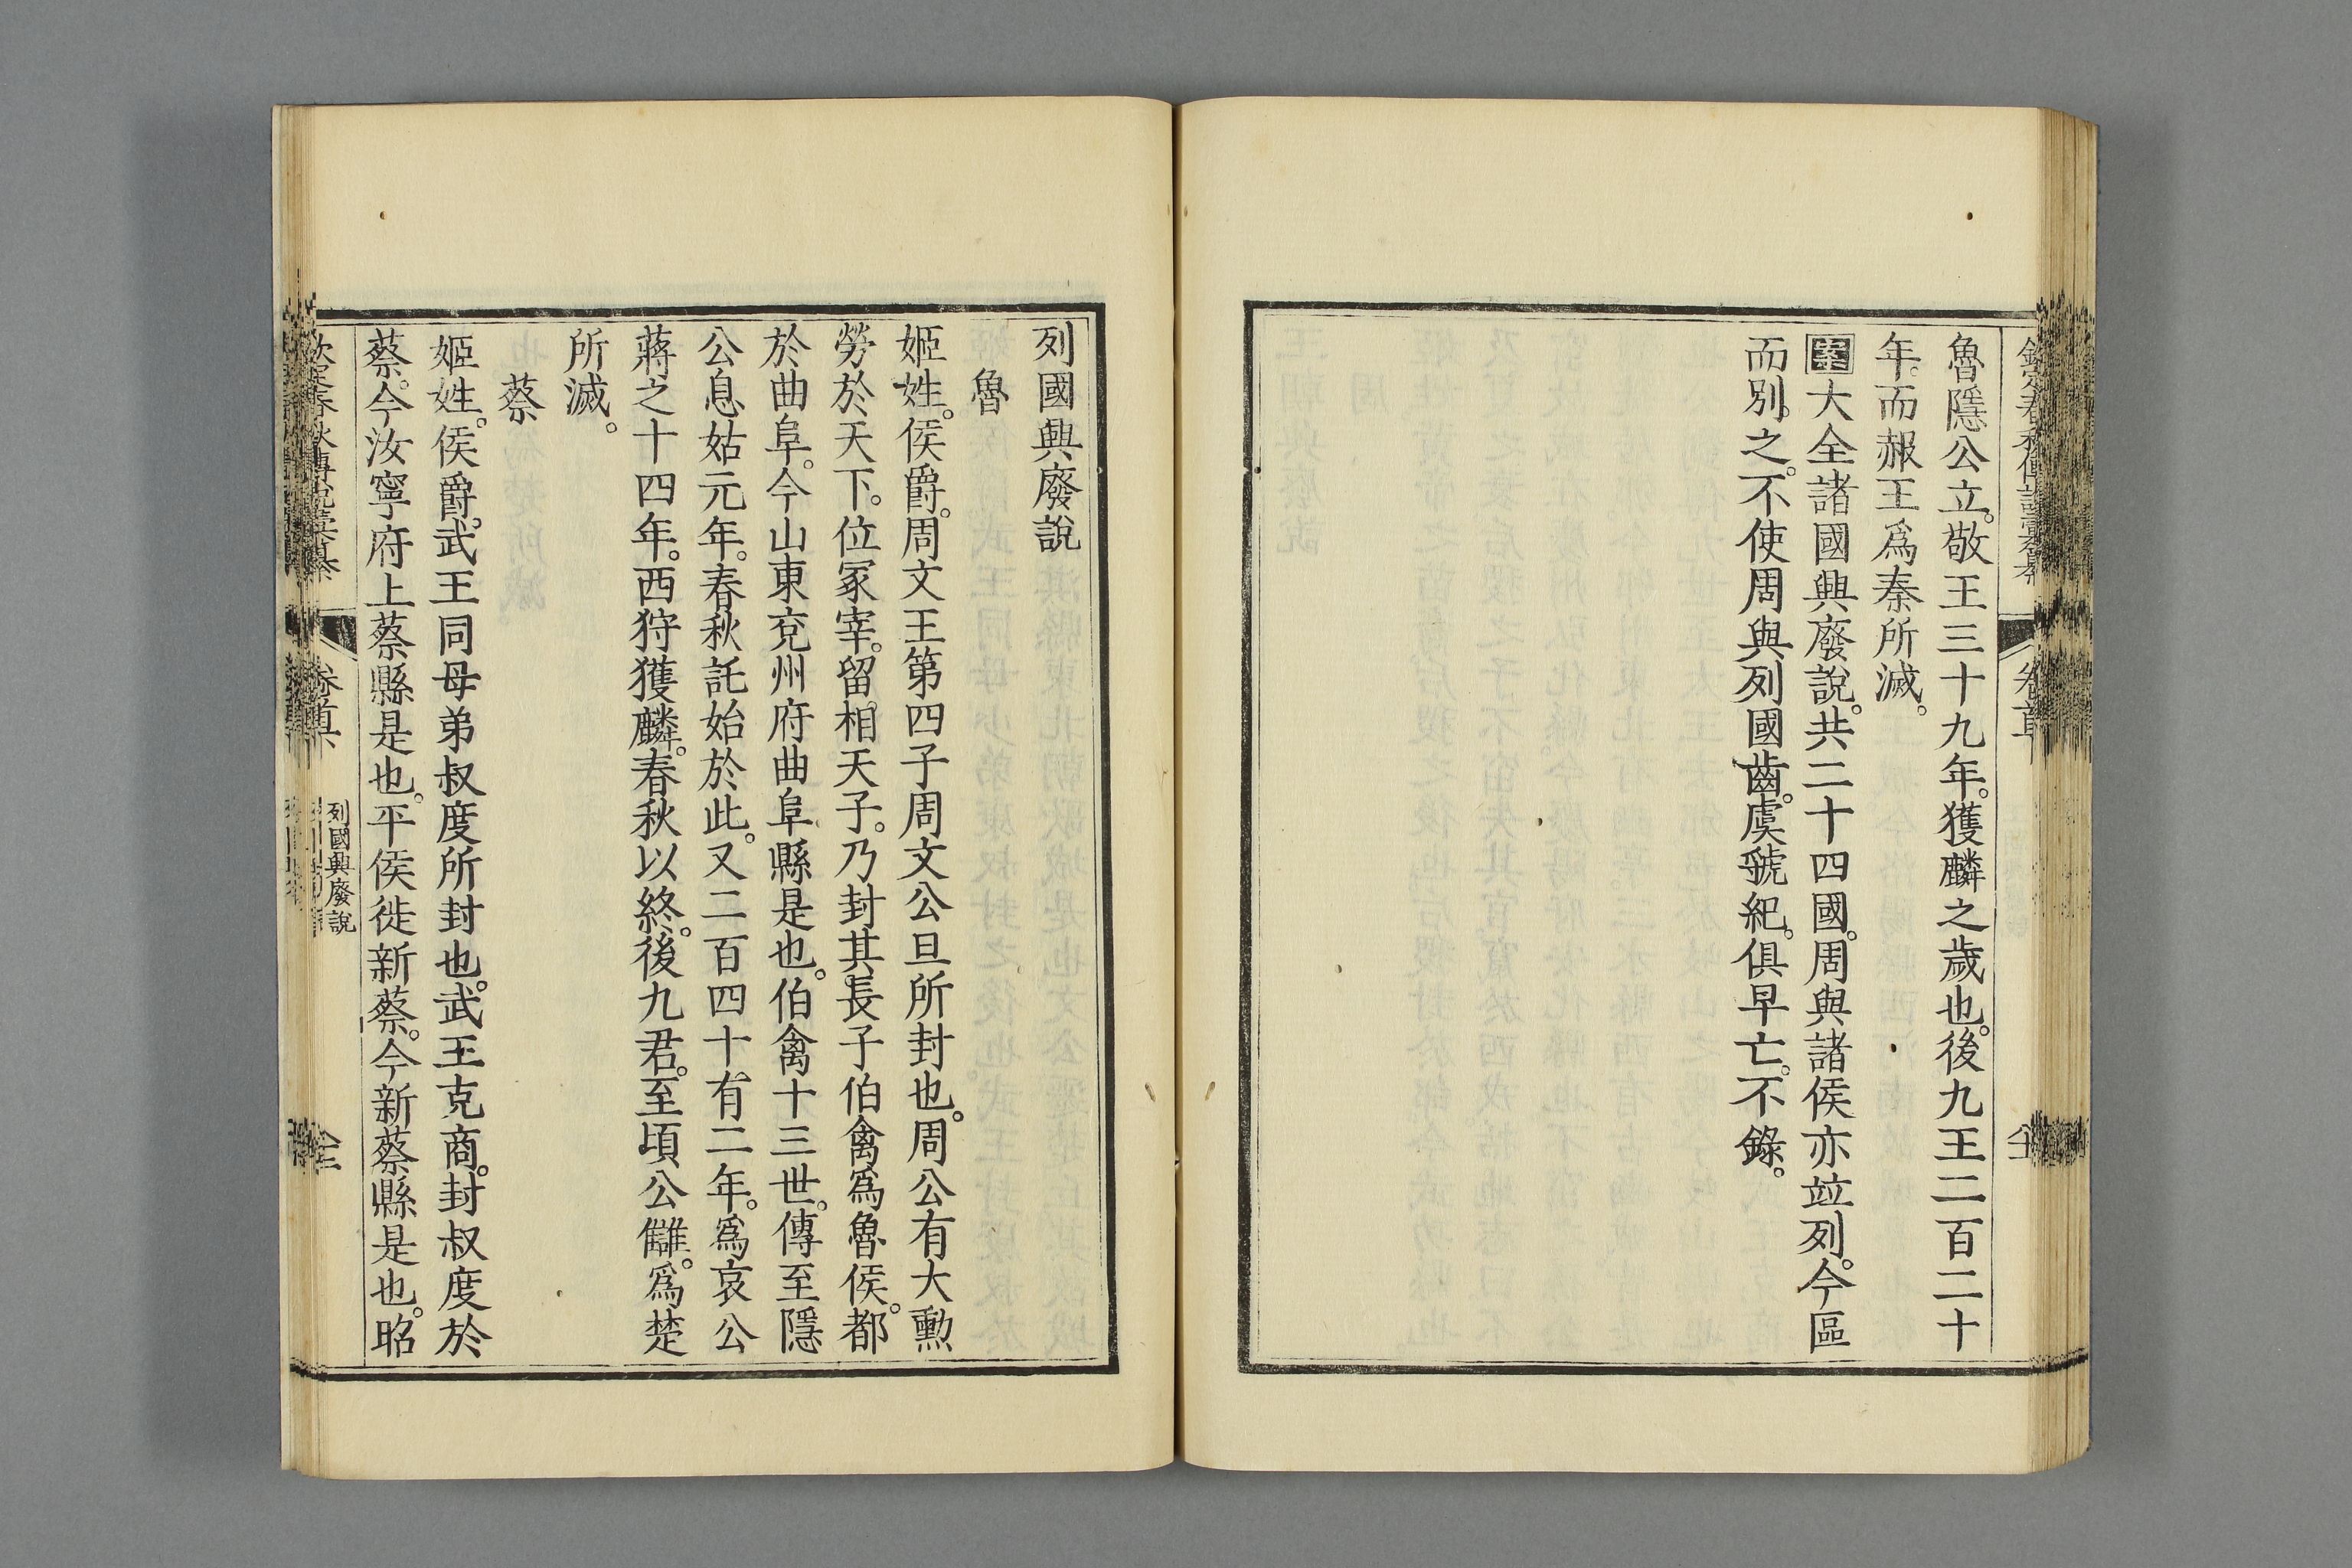 魯隱公立。敬王三十九年。獲麟之歲也。後九王二百二十
年。而赧王爲秦所滅。
案大全諸國興廢說。共二十四國。周與諸侯亦竝列。今區
而別之。不使周與列國齒。虞虢紀。俱早亡。不錄。
卷首
列國興廢說
魯
姬姓。侯爵。周文王第四子周文公旦所封也。周公有大勳
勞於天下。位冢宰。留相天子。乃封其長子伯禽爲魯侯。都
於曲阜。今山東兗州府曲阜縣是也。伯禽十三世。傳至隱
公息姑元年。春秋託始於此。又二百四十有二年。爲哀公
蔣之十四年。西狩獲麟。春秋以終。後九君。至頃公讎。爲楚
所滅。
蔡
姬姓。侯爵。武王同母弟叔度所封也。武王克商。封叔度於
蔡。今汝寧府上蔡縣是也。平侯徙新蔡。今新蔡縣是也。昭
欽定春秋傳說彙纂
卷首
列國興廢說